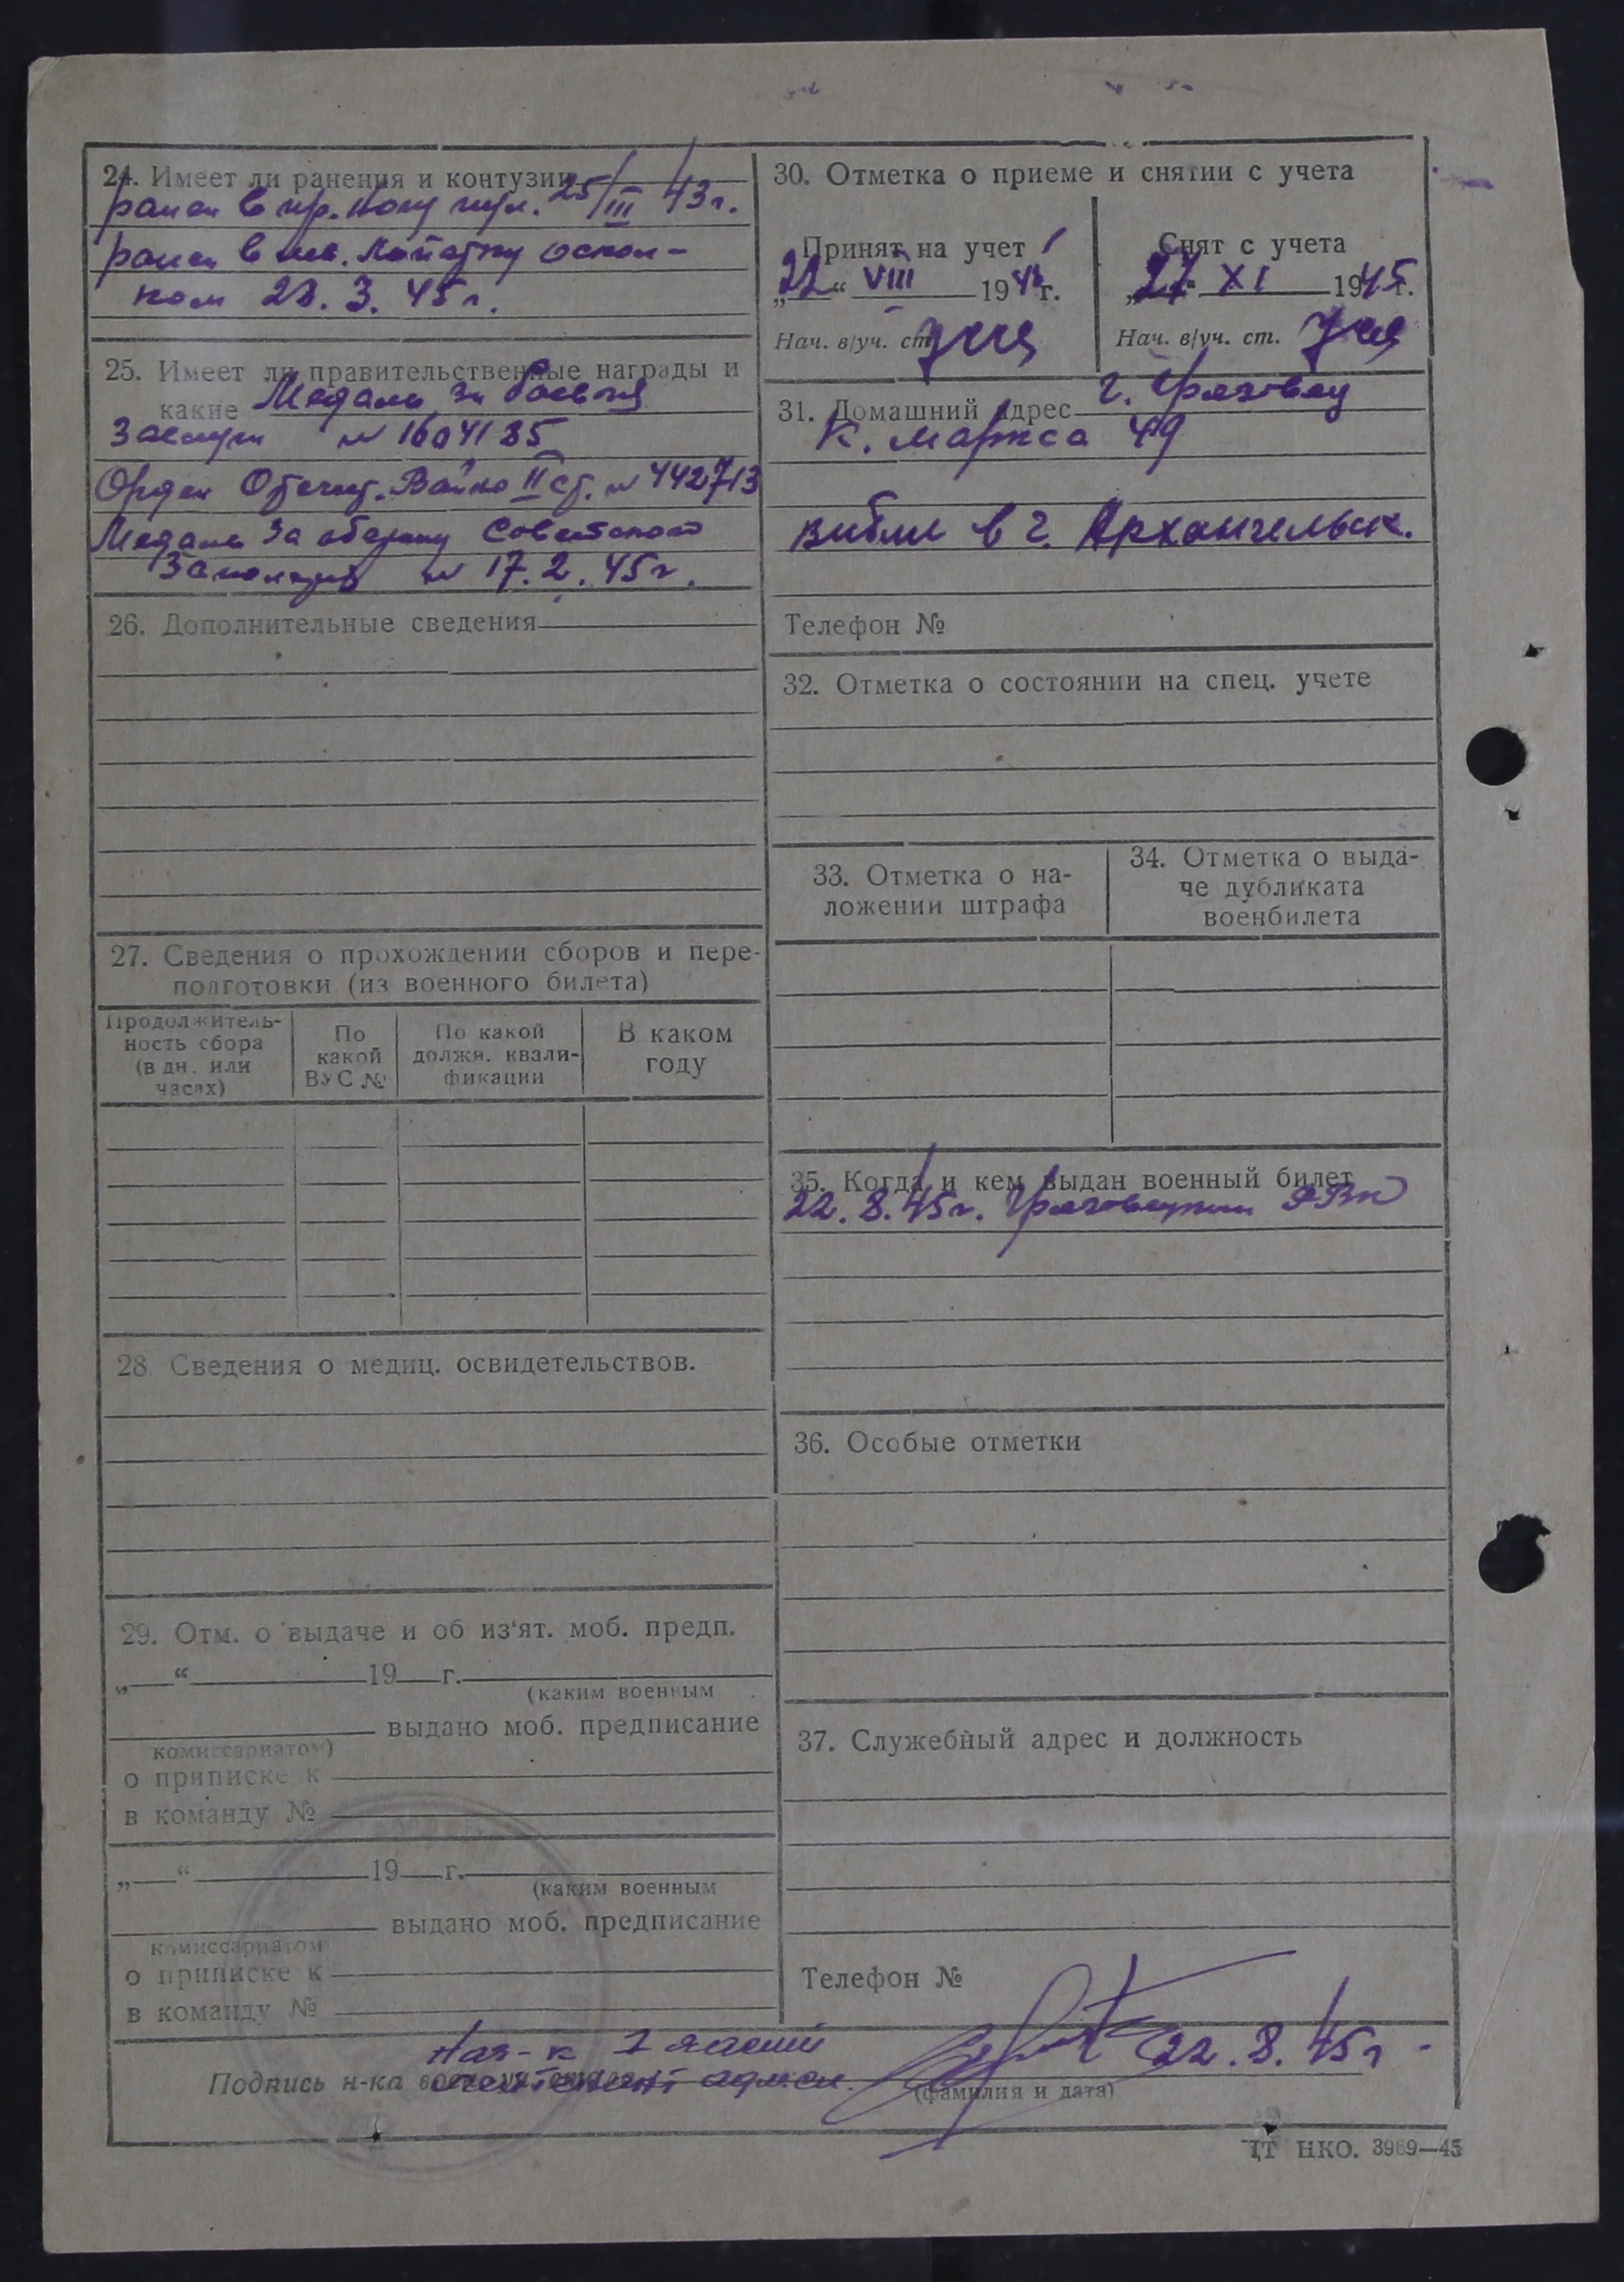 24. Имеет ли ранения и контузии
ранен в пр. ногу пул. 25/III 43 г.
ранен в лев. лопатку оскол-
ком 23. 3. 45 г.
25. Имеет ли правительственные награды и
какие Медаль За боевые
Заслуги № 1604185
Орден Отечест. Войны II ст. № 442713
Медаль За оборону Советского
Заполярья № 17. 2. 45 г.
26. Дополнительные сведения
27. Сведения о прохождении сборов и пере-
подготовки (из военного билета)
Продолжитель-
ность сбора
(в дн. или
часах)
По
какой
ВУС №
По какой
должн. квали-
фикации
В каком
году
28. Сведения о медиц. освидетельствов.
29. Отм. о выдаче и об из'ят. моб. предп.
„ “ 19 г.
(каким военным
выдано моб. предписание
комиссариатом)
о приписке к
в команду №
„ “ 19 г.
(каким военным
выдано моб. предписание
комиссариатом
о приписке к
в команду №
30. Отметка о приеме и снятии с учета
Принят на учет
„22“ VIII 1945 г.
Нач. в/уч. ст.
Снят с учета
„27“ XI 1945 г.
Нач. в/уч. ст.
31. Домашний адрес г. Грязовец
К. Маркса 49
выбыл в г. Архангельск.
Телефон №
32. Отметка о состоянии на спец. учете
33. Отметка о на-
ложении штрафа
34. Отметка о выда-
че дубликата
военбилета
35. Когда и кем выдан военный билет
22. 8. 45 г. Грязовецким РВК
36. Особые отметки
37. Служебный адрес и должность
Телефон №
Нач-к 1 части
Подпись н-ка лейтенант адм. сл. 22. 8. 45 г.
(фамилия и дата)
ЦТ НКО. 3969—45